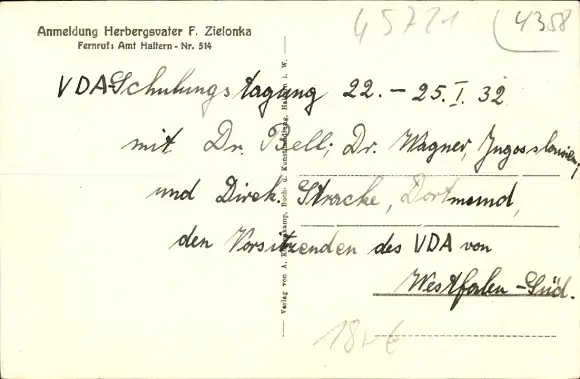 Anmeldung Herbergsvater F. Zielonka
Fernruf: Amt Haltern - Nr. 514
45721
4358
VDA-Schulungstagung 22. - 25. I. 32
mit Dr. Bell, Dr. Wagner, Jugoslawien,
und Direk. Stracke, Dortmund,
den Vorsitzenden des VDA von
Westfalen-Süd.
18,-€
Verlag von A. Buch- u. Kunsthandlung, Haltern i. W.